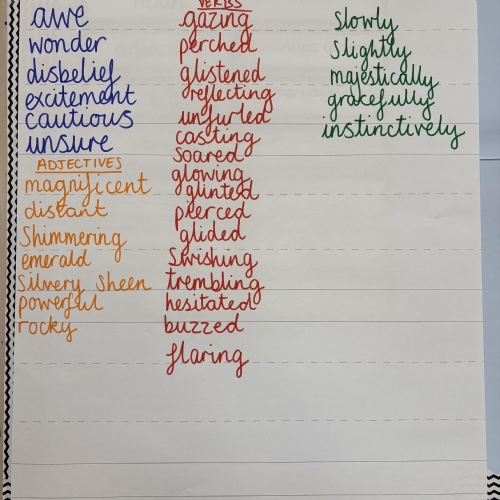 awe
wonder
disbelief
excitement
cautious
unsure
ADJECTIVES
magnificent
distant
Shimmering
emerald
Silvery Sheen
powerful
rocky
VERBS
gazing
perched
glistened
reflecting
unfurled
casting
Soared
glowing
glinted
peerced
glided
Swishing
trembling
hesitated
buzzed
flaring
Slowly
Slightly
majestically
gracefully
instinctively